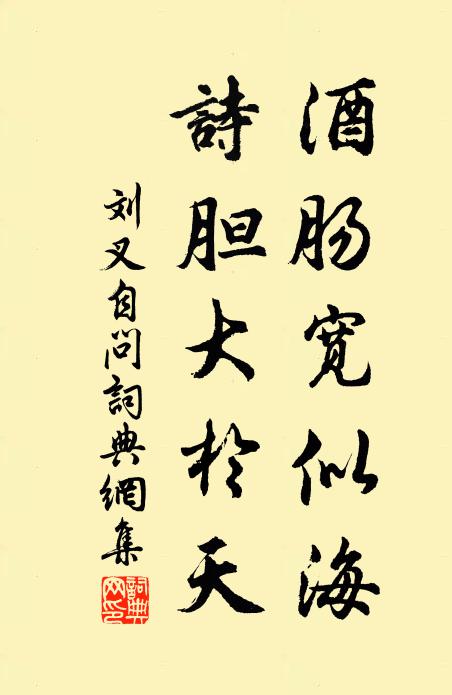 酒肠宽似海
詩胆大於天
刘叉自问詞典網集
詞典網印